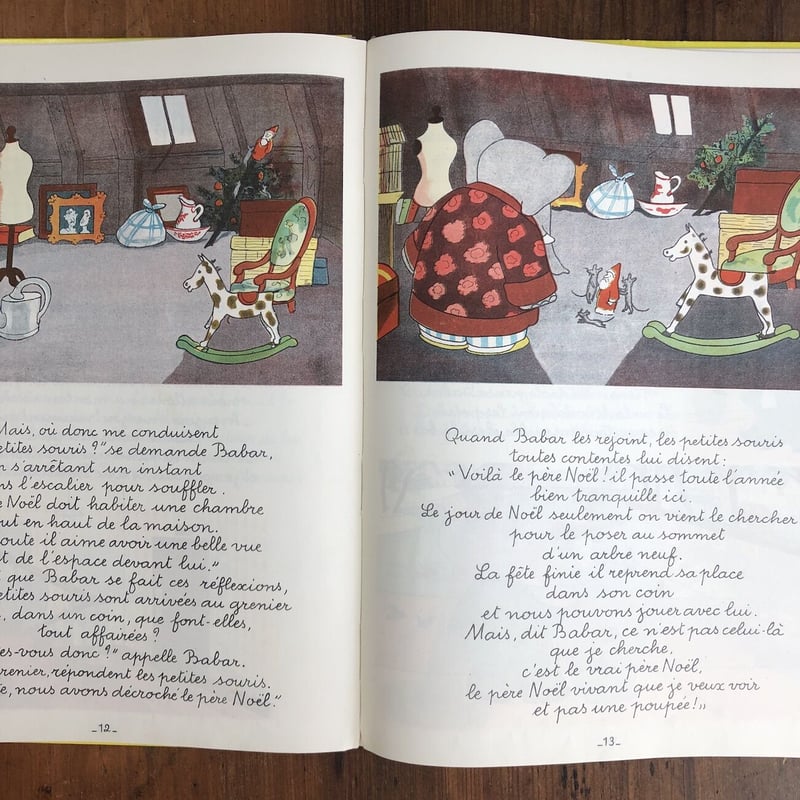 Mais, où donc me conduisent
etites souris?" se demande Babar,
n s'arrêtant un instant
ns l'escalier pour souffler.
e Noël doit habiter une chambre
out en haut de la maison.
oute il aime avoir une belle vue
t de l'espace devant lui."
que Babar se fait ces réflexions,
etites souris sont arrivées au grenier
, dans un coin, que font-elles,
tout affairées?
es-vous donc?" appelle Babar.
renier, répondent les petites souris.
te, nous avons décroché le père Noël."
_12_
Quand Babar les rejoint, les petites souris
toutes contentes lui disent:
"Voilà le père Noël! il passe toute l'année
bien tranquille ici.
Le jour de Noël seulement on vient le chercher
pour le poser au sommet
d'un arbre neuf.
La fête finie il reprend sa place
dans son coin
et nous pouvons jouer avec lui.
Mais, dit Babar, ce n'est pas celui-là
que je cherche,
c'est le vrai père Noël,
le père Noël vivant que je veux voir
et pas une poupée!"
_13_